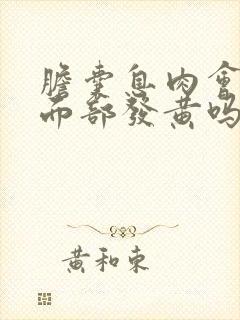 膽囊息肉會
面部發黃嗎
黃和東